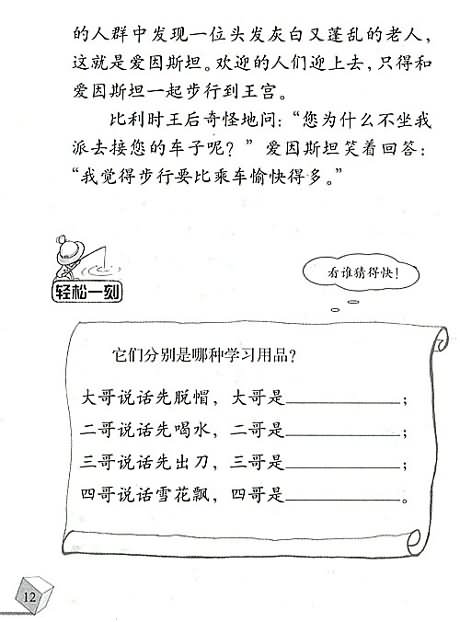 的人群中发现一位头发灰白又蓬乱的老人，
这就是爱因斯坦。欢迎的人们迎上去，只得和
爱因斯坦一起步行到王宫。
比利时王后奇怪地问：“您为什么不坐我
派去接您的车子呢？” 爱因斯坦笑着回答：
“我觉得步行要比乘车愉快得多。”
看谁猜得快！
轻松一刻
它们分别是哪种学习用品？
大哥说话先脱帽，大哥是__________；
二哥说话先喝水，二哥是__________；
三哥说话先出刀，三哥是__________；
四哥说话雪花飘，四哥是__________。
12